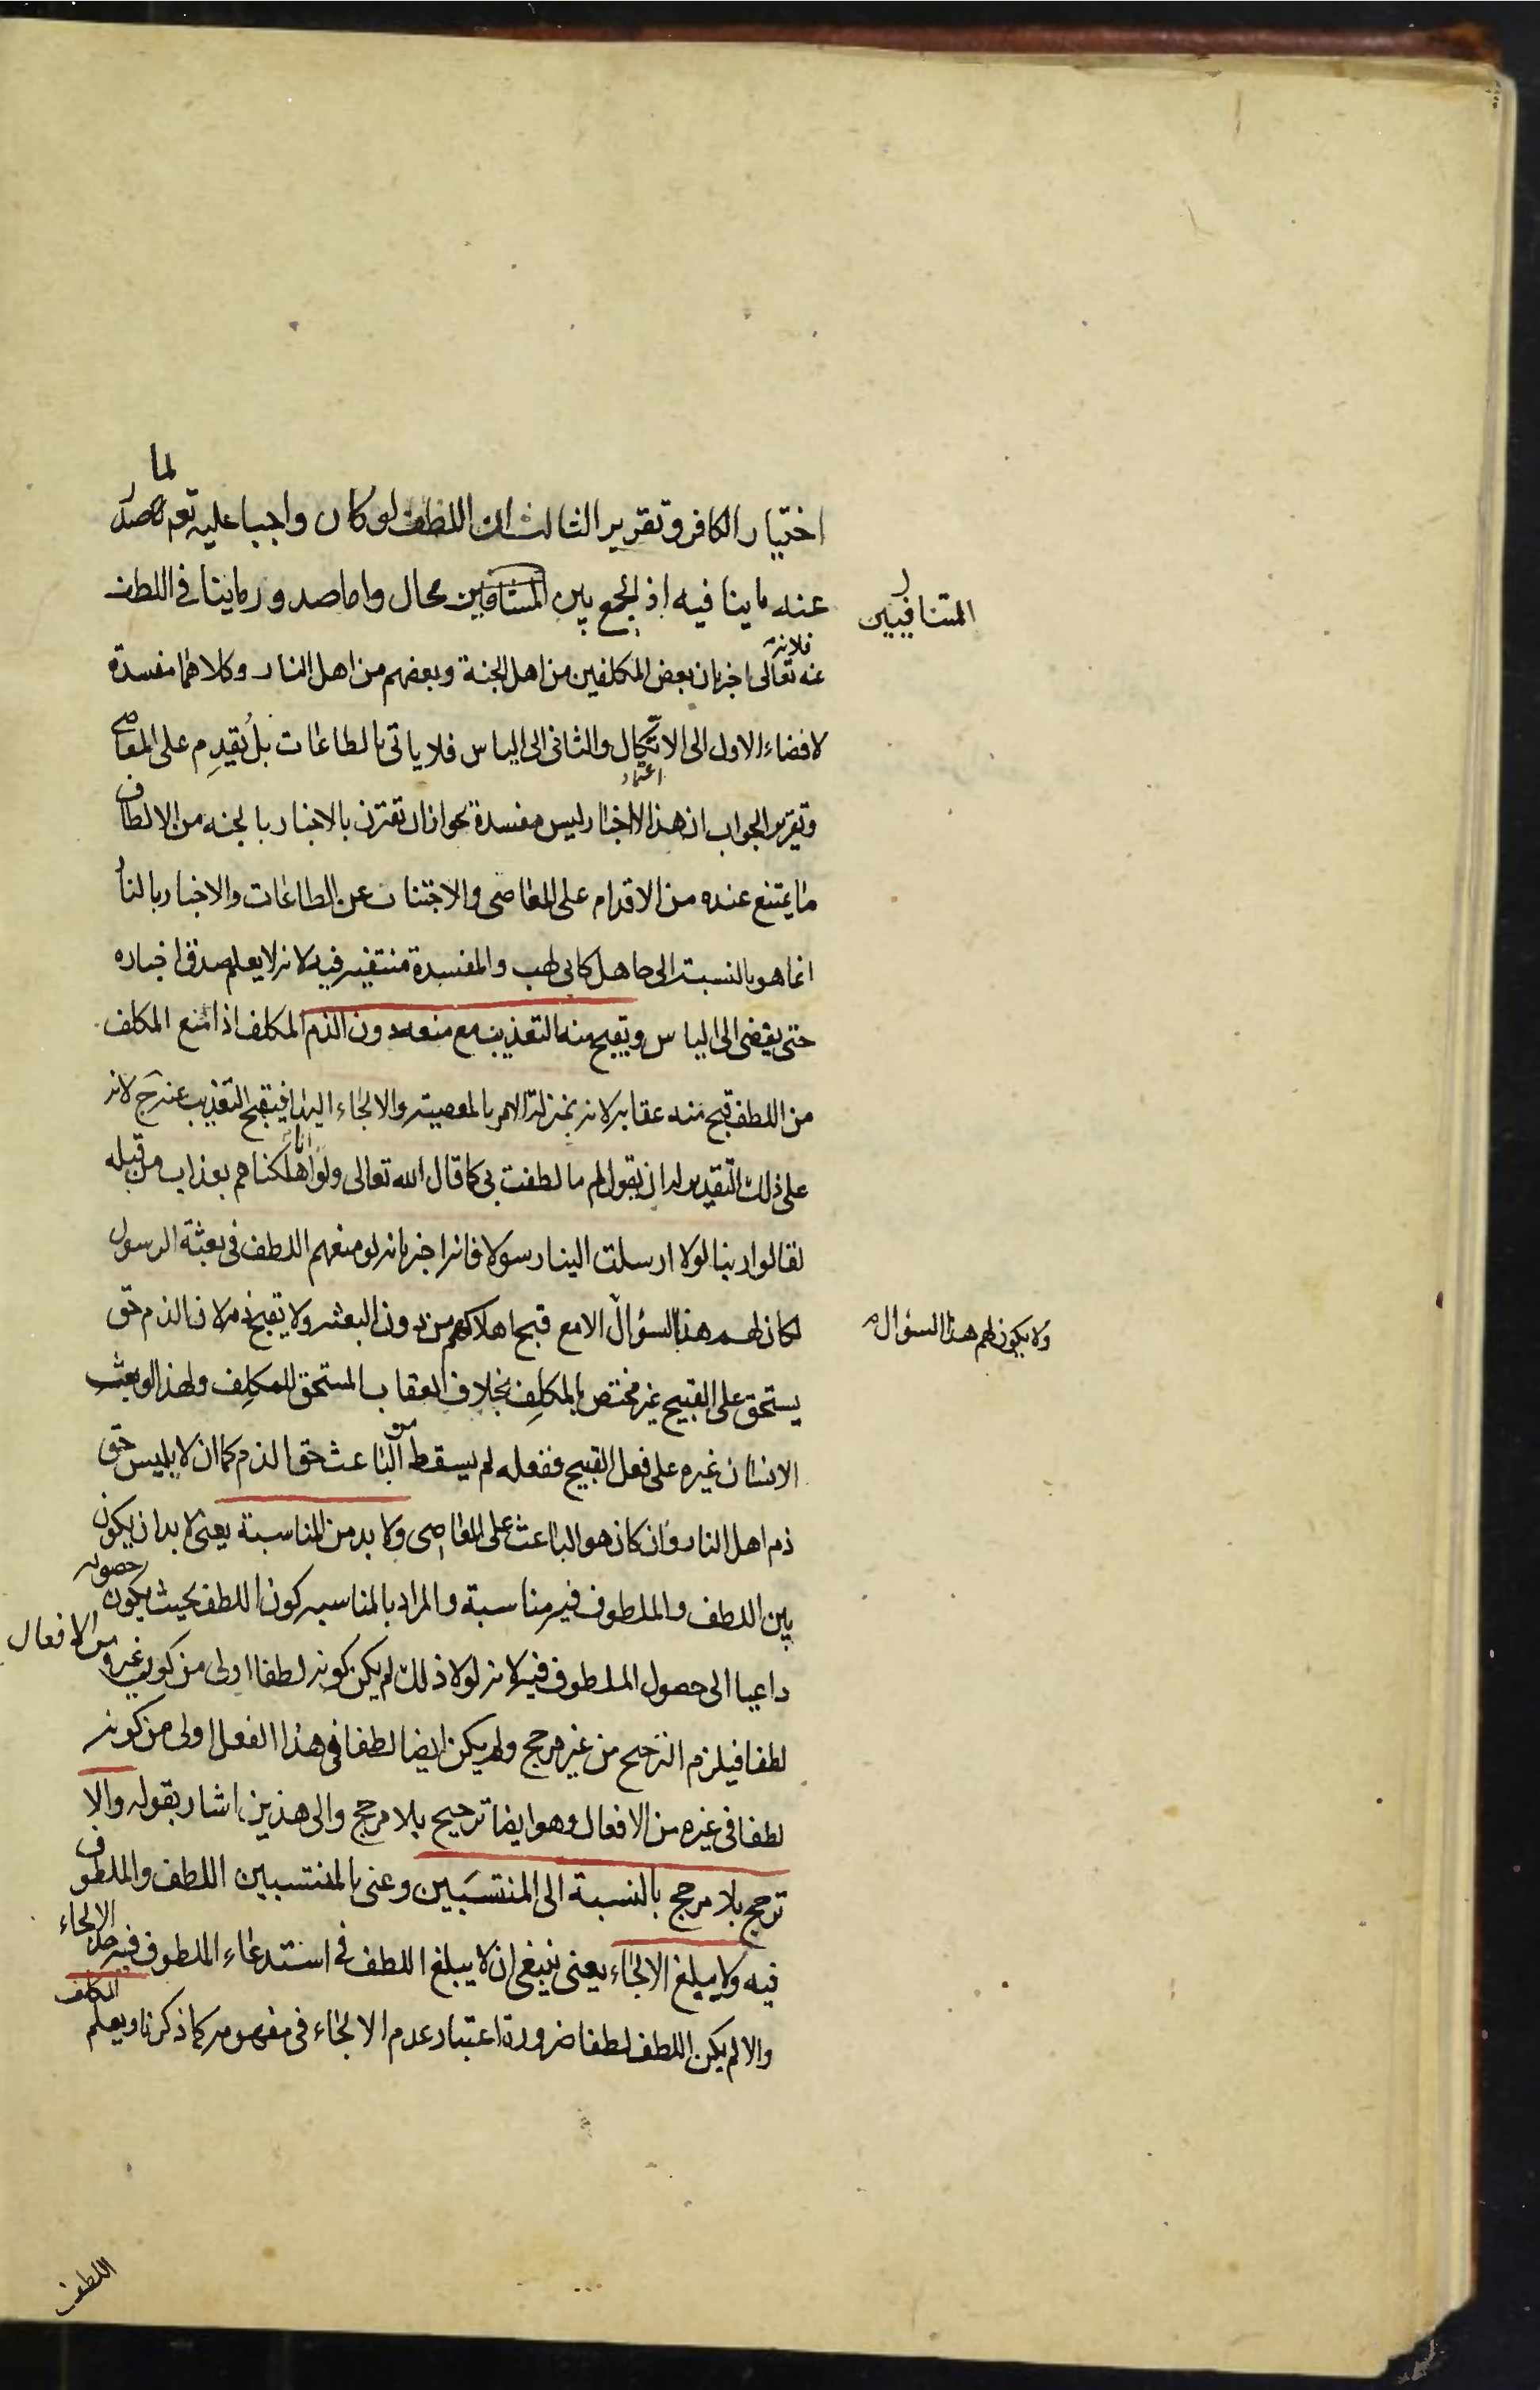 لما
اختيار الكافر وتقرير الثالث ان اللطف لو كان واجبا عليه تعم لما صدر
عنه ما ينافيه اذ الجمع بين المتنافيين محال واما صدور ما ينافي اللطف
المتنافيين
فلانه
عنه تعالى اخبر بان بعض المكلفين من اهل الجنة وبعضهم من اهل النار وكلاهما مفسدة
لافضاء الاول الى الاتكال والثاني الى الياس فلا ياتي بالطاعات بل يُقدِم على المعاصي
اعتماد
وتقرير الجواب ان هذا الاخبار ليس مفسدة بجواز ان تقترن بالاخبار بالجنه من الالطاف
ما يمتنع عنده من الاقدام على المعاصي والاجتناب عن الطاعات والاخبار بالنار
انما هو بالنسبة الى جاهل كابي لهب والمفسدة منتفيه فيه لانه لا يعلم صدق اخباره
حتى يفضي الى الياس ويقبح منه التعذيب مع منعه دون الذم المكلف اذا منع المكلف
من اللطف قبح منه عقابه لانه بمنزلة الامر بالمعصية والالجاء اليها فيقبح التعذيب عنه ح لانه
على ذلك التقدير له ان يقول لم ما لطفت بي كما قال الله تعالى ولو انا اهلكناهم بعذاب من قبله
لقالوا ربنا لولا ارسلت الينا رسولا فانه اخبر بانه لو منعهم اللطف في بعثة الرسول
لكان لهم هذا السؤال الا مع قبح اهلاكهم من دون البعثه ولا يقبح ذمه لان الذم حق
ولا يكون لهم هذا السؤال
يستحق على القبيح غير مختص بالمكلِف بخلاف العقاب المستحق للمكلِف ولهذا لو بعث
الانسان غيره على فعل القبيح ففعله لم يسقط من الباعث حق الذم كما ان لابليس حق
ذم اهل النار وان كان هو الباعث على المعاصي ولا بد من المناسبة يعني لا بد ان يكون
بين اللطف والملطوف فيه مناسبة والمراد بالمناسبه كون اللطف بحيث يكون حصوله
داعيا الى حصول الملطوف فيه لانه لولا ذلك لم يكن كونه لطفا اولى من كون غيره من الافعال
لطفا فيلزم الترجيح من غير مرجح ولم يكن ايضا لطفا في هذا الفعل اولى من كونه
لطفا في غيره من الافعال وهو ايضا ترجيح بلا مرجح والى هذين اشار بقوله والا
ترجح بلا مرجح بالنسبة الى المنتسَبين وعنى بالمنتسبين اللطف والملطوف
فيه ولا يبلغ الالجاء يعني ينبغي ان لا يبلغ اللطف في استدعاء الملطوف فيه حد الالجاء
والا لم يكن اللطف لطفا ضرورة اعتبار عدم الالجاء في مفهومه كما ذكرنا ويعلم المكلف
اللطف